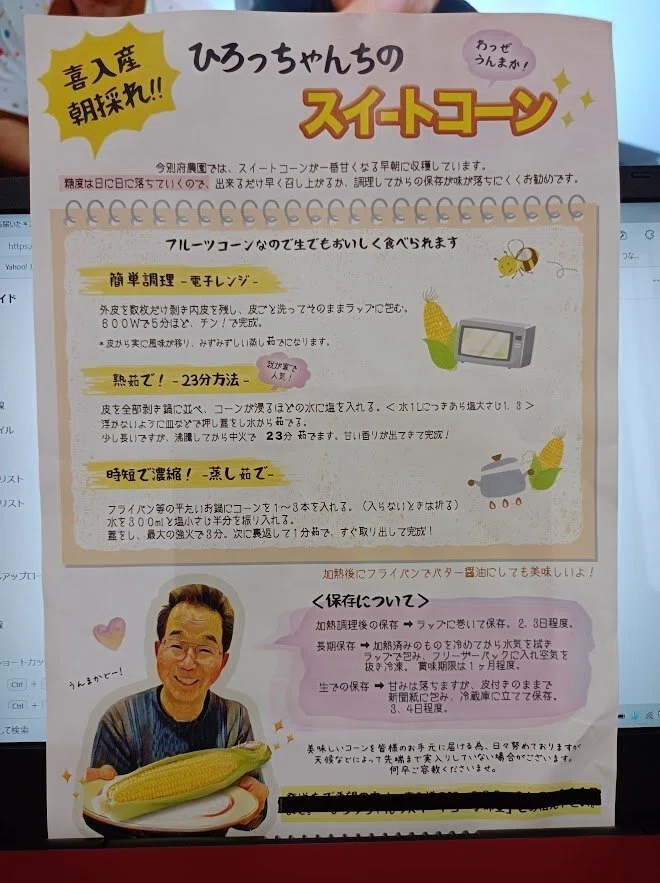 喜入産
朝採れ!!
ひろっちゃんちの
スイートコーン
わっぜ
うんまか!
今別府農園では、スイートコーンが一番甘くなる早朝に収穫しています。
糖度は日に日に落ちていくので、出来るだけ早く召し上がるか、調理してからの保存が味が落ちにくくお勧めです。
フルーツコーンなので生でもおいしく食べられます
簡単調理 -電子レンジ-
外皮を数枚だけ剥き内皮を残し、皮ごと洗ってそのままラップに包む。
600Wで5分ほど、チン!で完成。
*皮から実に風味が移り、みずみずしい蒸し茹でになります。
熟茹で! -23分方法-
我が家で
人気!
皮を全部剥き鍋に並べ、コーンが浸るほどの水に塩を入れる。<水1Lにつきあら塩大さじ1.3>
浮かないように皿などで押し蓋をし水から茹でる。
少し長いですが、沸騰してから中火で 23分 茹でます。甘い香りが出てきて完成!
時短で濃縮! -蒸し茹で-
フライパン等の平たいお鍋にコーンを1~3本を入れる。(入らないときは折る)
水を300mlと塩小さじ半分を振り入れる。
蓋をし、最大の強火で3分。次に裏返して1分茹で、すぐ取り出して完成!
加熱後にフライパンでバター醤油にしても美味しいよ!
<保存について>
加熱調理後の保存 ➡ ラップに巻いて保存。2、3日程度。
長期保存 ➡ 加熱済みのものを冷めてから水気を拭き
ラップで包み、フリーザーパックに入れ空気を
抜き冷凍。賞味期限は1ヶ月程度。
生での保存 ➡ 甘みは落ちますが、皮付きのままで
新聞紙に包み、冷蔵庫に立てて保存。
3、4日程度。
うんまかどー!
美味しいコーンを皆様のお手元に届ける為、日々努めておりますが
天候などによって先端まで実入りしていない場合がございます。
何卒ご容赦くださいませ。
https:/
Yahoo!
イド
線
イル
リスト
リスト
ルアップロー
線
ショートカッ
Ctrl +
Ctrl +
して検索